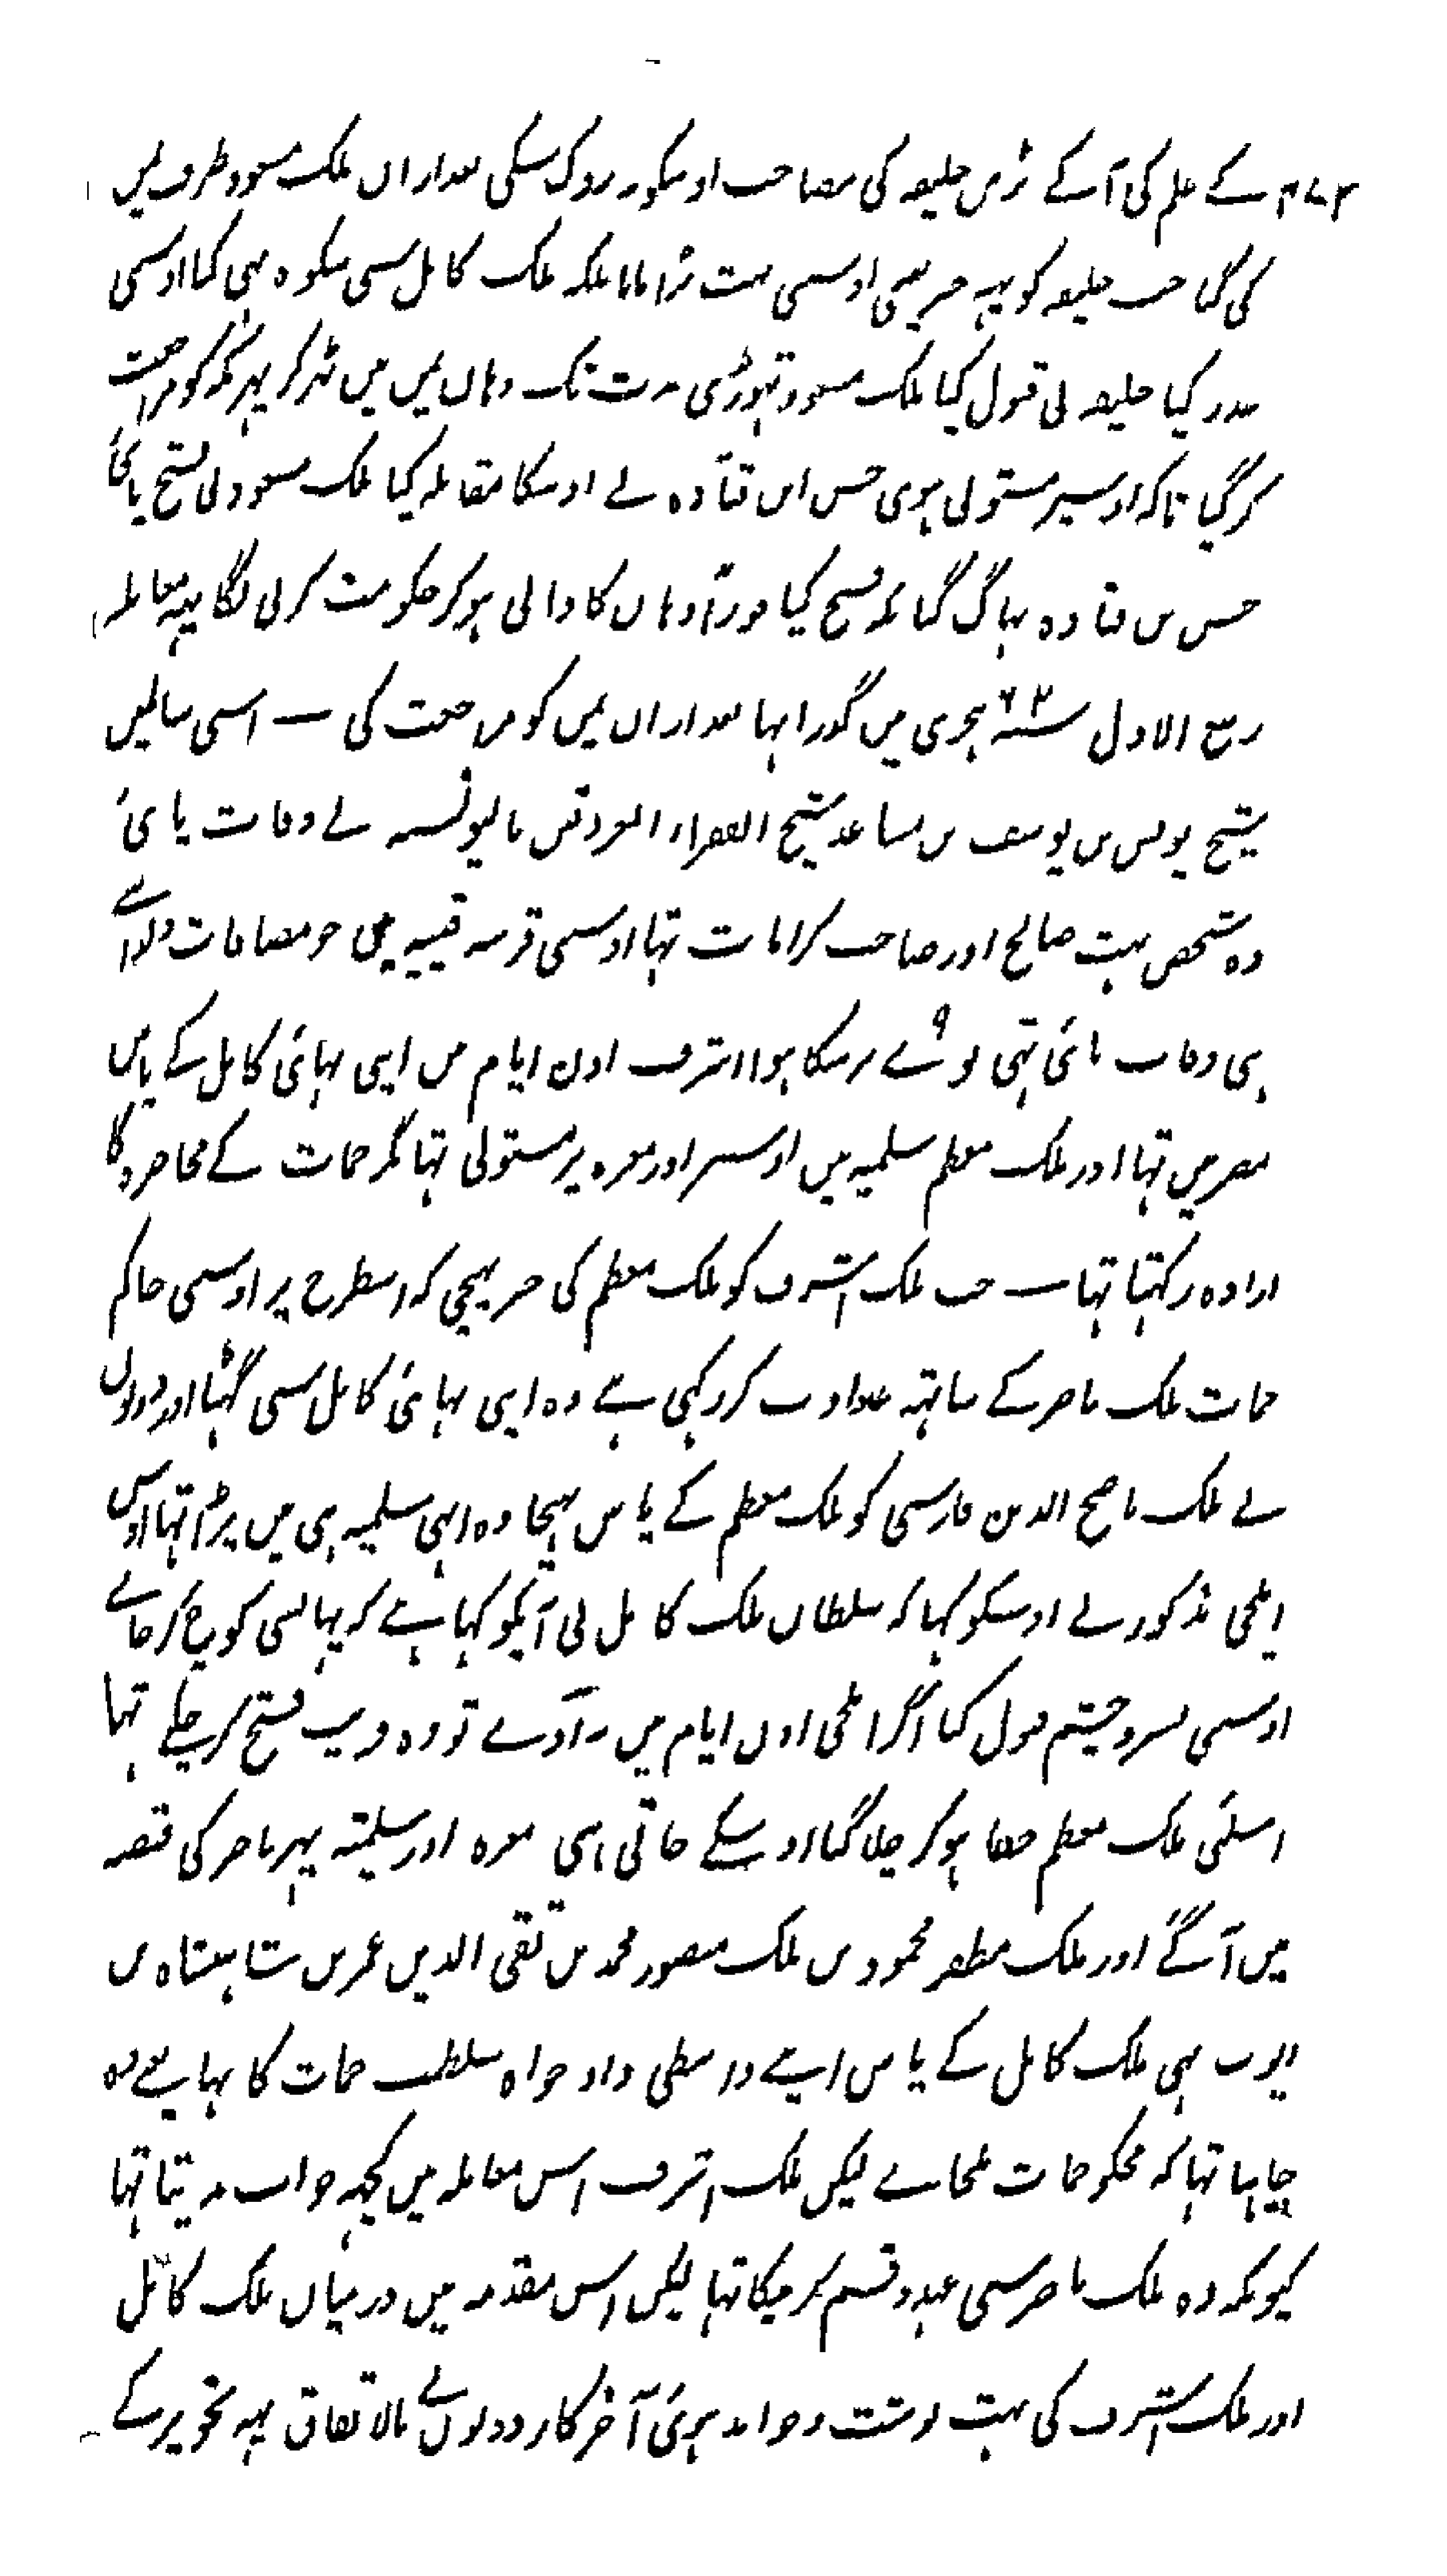 کے علم کی آگے بڑہی خلیفہ کی مصاحب اوسکو نہ روک سکی بعد ازاں ملک مسعود طرف یمن
کی گیا جب خلیفہ کو یہہ خبر پہنچی اوسی بہت بڑا مانا بلکہ ملک کامل سی شکوہ بہی کیا اوسی
عذر کیا خلیفہ نی قبول کیا ملک مسعود تہوڑی مدت تک وہاں یمن میں ٹہر کر پہر مکہ کو مراجعت
کر گیا تاکہ اوسپر مستولی ہوی حسن ابن قتادہ نے اوسکا مقابلہ کیا ملک مسعود نی فتح پائی
حسن بن قتادہ بہاگ گیا مکہ فتح کیا فوراً وہاں کا والی ہو کر حکومت کرنی لگا یہہ معاملہ
ربیع الاول سنہ ۶۲ ہجری میں گورا تہا بعد ازاں یمن کو مراجعت کی — اسی سالمیں
شیخ یونس بن یوسف بن مساعد شیخ الفقراء المعروف بالیونسیہ نے وفات پائی
وہ شخص بہت صالح اور صاحب کرامات تہا اوسی قریہ قنیہ میں جو مضافات دارا سے
ہی وفات پائی تہی نوٓے برسکا ہوا اشرف اون ایام میں اپنی بہائی کامل کے پاس
مصر میں تہا اور ملک معظم سلمیہ میں اوسپر اور معرہ پر مستولی تہا مگر حمات کے محاصرہ کا
ارادہ رکہتا تہا — جب ملک اشرف کو ملک معظم کی خبر پہنچی کہ اسطرح پر اوسی حاکم
حمات ملک ناصر کے ساتہہ عداوت کر رکہی ہے وہ اپنی بہائی کامل سی گہٹا اور دونوں
نے ملک ناصح الدین فارسی کو ملک معظم کے پاس بہیجا وہ ابہی سلمیہ ہی میں پڑا تہا اوس
ایلچی مذکور نے اوسکو کہا کہ سلطان ملک کامل نی آپکو کہا ہے کہ یہانسی کوچ کر جائے
اوسی بسر و چشم قبول کیا اگر ایلچی اون ایام میں نہ آوے تو وہ قریب فتح کر چکے تہا
اسلئی ملک معظم خفا ہو کر چلا گیا اوسکے جاتی ہی معرہ اور سلمیتہ پہر ناصر کی قبضہ
میں آ گے اور ملک مظفر محمود بن ملک منصور محمد بن تقی الدین عمر بن شاہنشاہ بن
ایوب بہی ملک کامل کے پاس اپنے واسطی داد خواہ سلطنت حمات کا تہا یعنے وہ
چاہتا تہا کہ مجکو حمات ملجاے لیکن ملک اشرف اس معاملہ میں کچہہ جواب نہ دیتا تہا
کیونکہ وہ ملک ناصر سی عہد و قسم کر چکا تہا لیکن اس مقدمہ میں درمیان ملک کامل
اور ملک اشرف کی بہت نوشت و خواند ہوئی آخر کار دونوں نے بالاتفاق یہہ تجویز کے